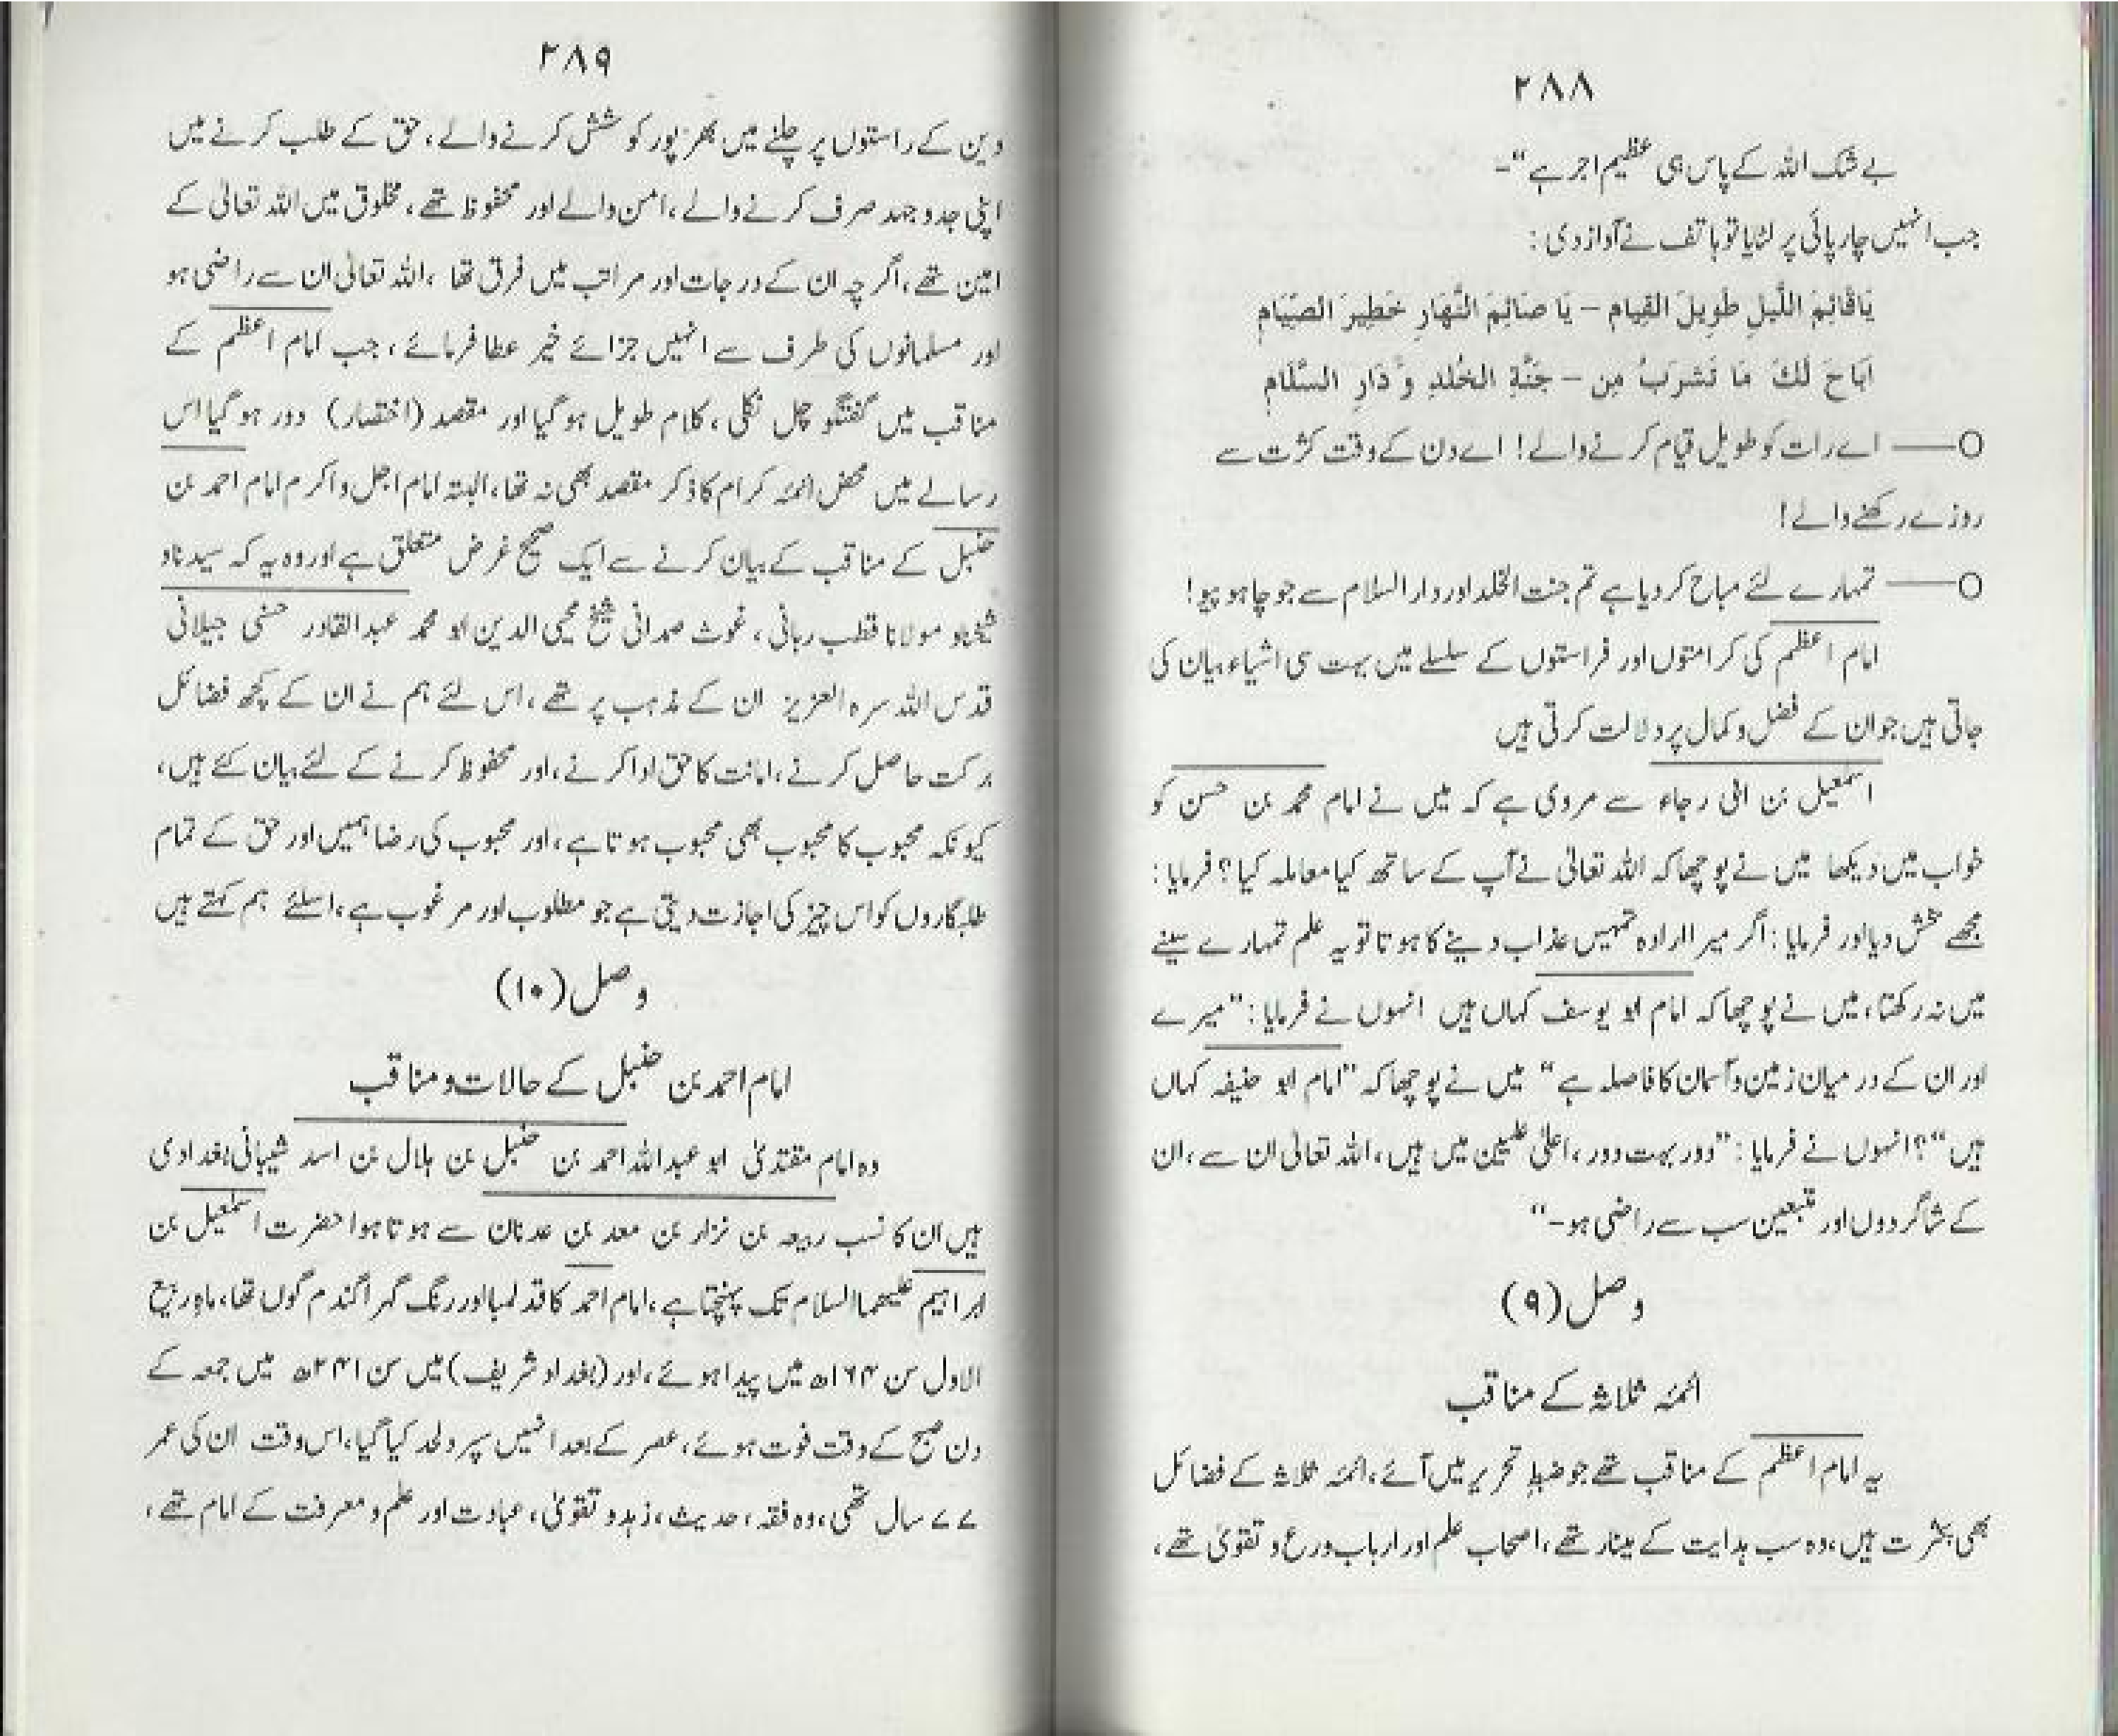 ۲۸۸
بے شک اللہ کے پاس ہی عظیم اجر ہے“۔
جب انہیں چارپائی پر لٹایا تو ہاتف نے آواز دی :
يَاقَائِمَ اللَّيلِ طَوِيلَ القِيامِ – يَا صَائِمَ النَّهَارِ خَطِيرَ الصِّيَامِ
اَبَاحَ لَكَ مَا تَشرَبُ مِن – جَنَّةِ الخُلدِ وَ دَارِ السَّلَامِ
O —— اے رات کو طویل قیام کرنے والے! اے دن کے وقت کثرت سے
روزے رکھنے والے!
O —— تمہارے لئے مباح کر دیا ہے تم جنت الخلد اور دار السلام سے جو چاہو پیو!
امام اعظم کی کرامتوں اور فراستوں کے سلسلے میں بہت سی اشیاء بیان کی
جاتی ہیں جو ان کے فضل و کمال پر دلالت کرتی ہیں
اسمٰعیل بن ابی رجاء سے مروی ہے کہ میں نے امام محمد بن حسن کو
خواب میں دیکھا میں نے پوچھا کہ اللہ تعالیٰ نے آپ کے ساتھ کیا معاملہ کیا؟ فرمایا :
مجھے بخش دیا اور فرمایا : اگر میرا ارادہ تمہیں عذاب دینے کا ہوتا تو یہ علم تمہارے سینے
میں نہ رکھتا، میں نے پوچھا کہ امام ابو یوسف کہاں ہیں انہوں نے فرمایا : ”میرے
اور ان کے درمیان زمین و آسمان کا فاصلہ ہے“ میں نے پوچھا کہ ”امام ابو حنیفہ کہاں
ہیں“؟ انہوں نے فرمایا : ”دور بہت دور، اعلیٰ علیین میں ہیں، اللہ تعالیٰ ان سے، ان
کے شاگردوں اور متبعین سب سے راضی ہو۔“
وصل (۹)
ائمہ ثلاثہ کے مناقب
یہ امام اعظم کے مناقب تھے جو ضبطِ تحریر میں آئے، ائمہ ثلاثہ کے فضائل
بھی بکثرت ہیں، وہ سب ہدایت کے مینار تھے، اصحاب علم اور ارباب ورع و تقویٰ تھے،
۲۸۹
دین کے راستوں پر چلنے میں بھرپور کوشش کرنے والے، حق کے طلب کرنے میں
اپنی جدوجہد صرف کرنے والے، امن والے اور محفوظ تھے، مخلوق میں اللہ تعالیٰ کے
امین تھے، اگرچہ ان کے درجات اور مراتب میں فرق تھا، اللہ تعالیٰ ان سے راضی ہو
اور مسلمانوں کی طرف سے انہیں جزائے خیر عطا فرمائے، جب امام اعظم کے
مناقب میں گفتگو چل نکلی، کلام طویل ہو گیا اور مقصد (اختصار) دور ہو گیا اس
رسالے میں محض ائمہ کرام کا ذکر مقصد بھی نہ تھا، البتہ امام اجل و اکرم امام احمد بن
حنبل کے مناقب کے بیان کرنے سے ایک صحیح غرض متعلق ہے اور وہ یہ کہ سیدنا و
شیخنا و مولانا قطب ربانی، غوث صمدانی شیخ محیی الدین ابو محمد عبدالقادر حسنی جیلانی
قدس اللہ سرہ العزیز ان کے مذہب پر تھے، اس لئے ہم نے ان کے کچھ فضائل
برکت حاصل کرنے، امانت کا حق ادا کرنے، اور محفوظ کرنے کے لئے بیان کئے ہیں،
کیونکہ محبوب کا محبوب بھی محبوب ہوتا ہے، اور محبوب کی رضا ہمیں اور حق کے تمام
طلبگاروں کو اس چیز کی اجازت دیتی ہے جو مطلوب اور مرغوب ہے، اسلئے ہم کہتے ہیں
وصل (۱۰)
امام احمد بن حنبل کے حالات و مناقب
وہ امام مقتدیٰ ابو عبداللہ احمد بن حنبل بن ہلال بن اسد شیبانی بغدادی
ہیں ان کا نسب ربیعہ بن نزار بن معد بن عدنان سے ہوتا ہوا حضرت اسمٰعیل بن
ابراہیم علیہما السلام تک پہنچتا ہے، امام احمد کا قد لمبا اور رنگ گہرا گندم گوں تھا، ماہ ربیع
الاول سن ۱۶۴ھ میں پیدا ہوئے، اور (بغداد شریف) میں سن ۲۴۱ھ میں جمعہ کے
دن صبح کے وقت فوت ہوئے، عصر کے بعد انہیں سپرد لحد کیا گیا، اس وقت ان کی عمر
۷۷ سال تھی، وہ فقہ، حدیث، زہد و تقویٰ، عبادت اور علم و معرفت کے امام تھے،